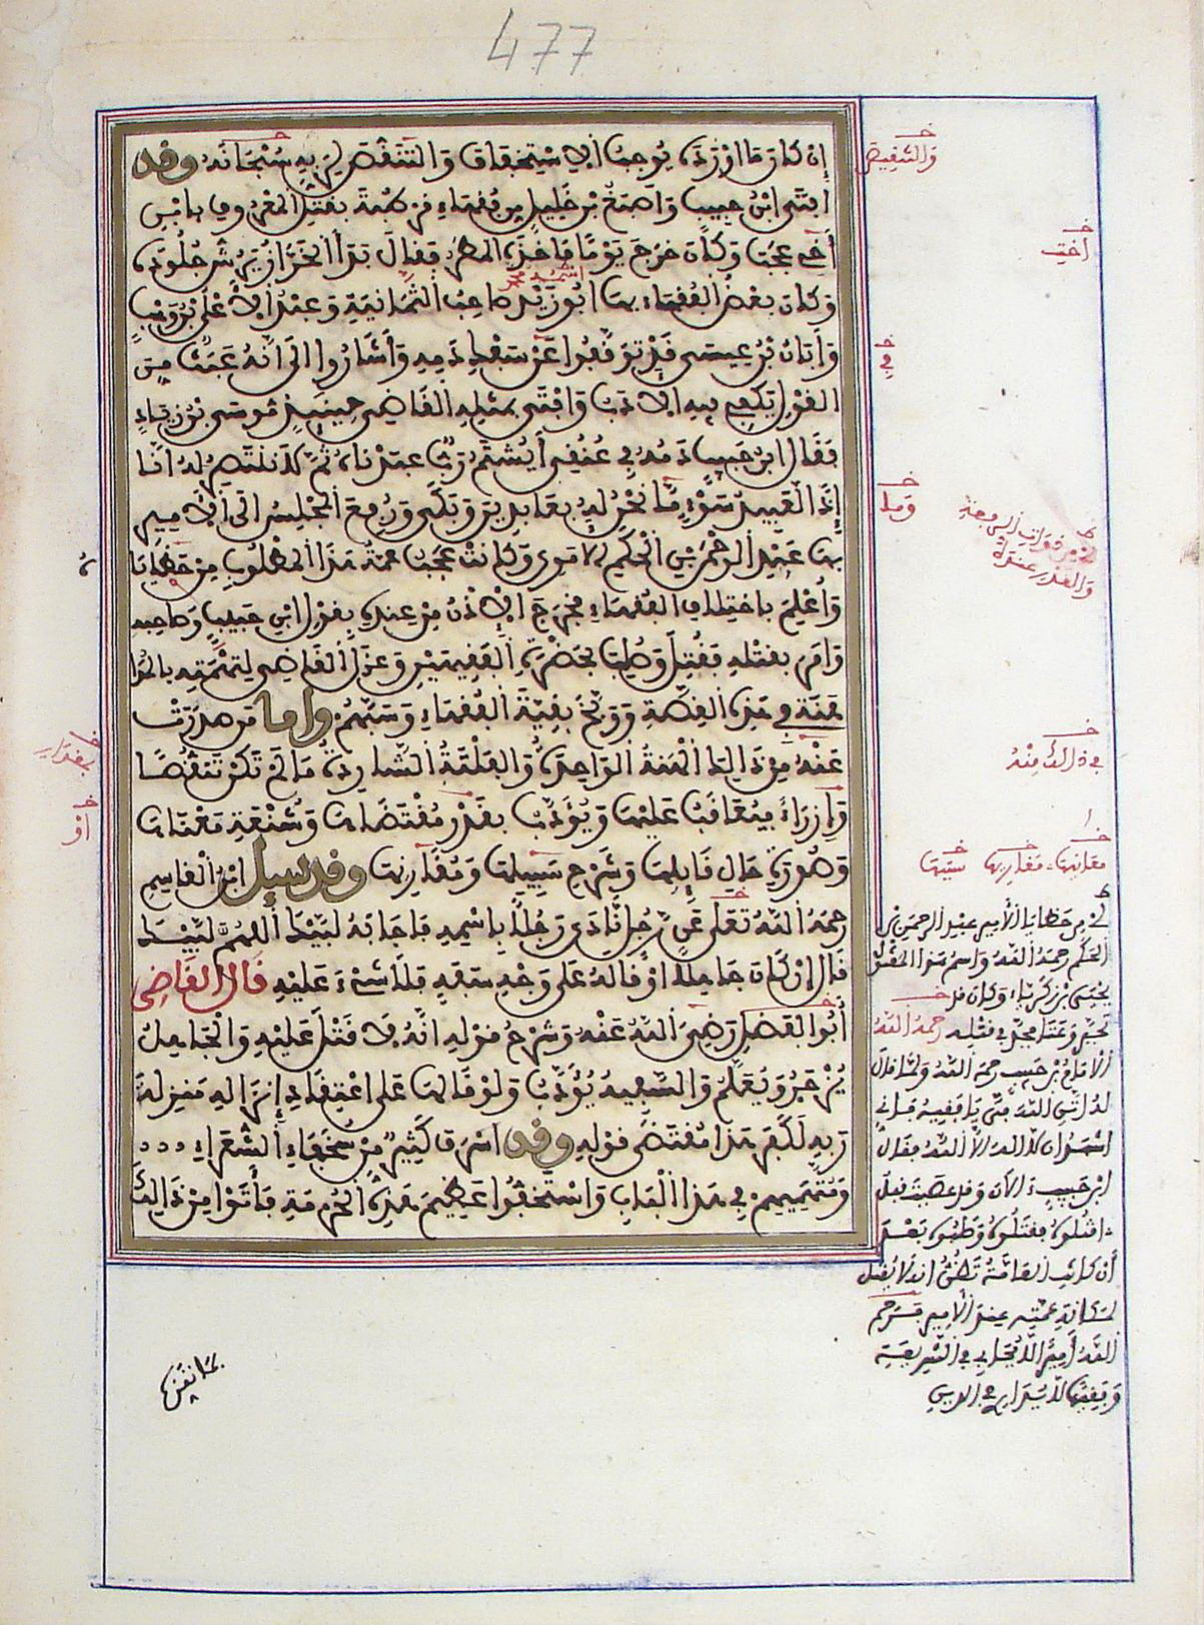 477
إن كان ما أورده يوجب الاستخفاف والتنقص لربه سبحانه وقد
أفتى ابن حبيب وأصبغ بن خليل من فقهاء قرطبة بقتل المعروف بابن
أخي عجب وكان خرج يوما فأخذه المطر فقال بدأ الخراز يرش جلوده
وكان بعض الفقهاء بها أبو زيد صاحب الثمانية وعبد الأعلى بن وهب
وأبان بن عيسى قد توقفوا عن سفك دمه وأشاروا إلى أنه عبث من
القول يكفي فيه الأدب وأفتى بمثله القاضي حينئذ موسى بن زياد
فقال ابن حبيب دمه في عنقي أيشتم رب عبدناه ثم لا ننتصر له إنا
إذا لعبيد سوء ما نحن له بعابدين وبكى ورفع المجلس إلى الأمير
بها عبد الرحمن بن الحكم الأموي وكانت عجب عمة هذا المطلوب من حظاياه
وأعلم باختلاف الفقهاء فخرج الإذن من عنده بقول ابن حبيب وصاحبه
وأمر بقتله فقتل وصلب بحضرة الفقيهين وعزل القاضي لتهمته بالمدا
هنة في هذه القصة ووبخ بقية الفقهاء وسبهم وأما من صدرت
عنه من ذلك الهنة الواحدة والفلتة الشاردة ما لم تكن تنقصا
وإزراء فيعاقب عليها ويؤدب بقدر مقتضاها وشنعة معناها
وصورة حال قايلها وشرح سببها ومقارنها وقد سيل ابن القاسم
رحمه الله تعلى عن رجل نادى رجلا باسمه فأجابه لبيك اللهم لبيك
قال إن كان جاهلا أو قاله على وجه سفه فلا شيء عليه قال القاضي
أبو الفضل رضي الله عنه وشرح قوله أنه لا قتل عليه والجاهل
يزجر ويعلم والسفيه يؤدب ولو قالها على اعتقاد إنزاله منزلة
ربه لكفر هذا مقتضى قوله وقد أسرف كثير من سخفاء الشعراء
ومتهميهم في هذا الباب واستخفوا عظيم هذه الحرمة فأتوا من ذلك
أشهد
والتنقيص
أخت
في
وما
في ذلك منه
بمقدار
أو
معانيها مقارنها سببها
من حظايا الأمير عبد الرحمن بن
الحكم رحمه الله واسم هذا المقتول
يحيى بن زكرياء وكان قد
رحمه الله
ابن حبيب رحمه الله
أشهد أن لا إله إلا الله فقال
ابن حبيب الآن وقد عصيت قبل
اقتلوه فقتلوه وصلبوه بعد
أن كانت العامة تظن أنه لا يقتل
لمكانة عمته عند الأمير فرحم
الله أميرا لا يحابي في الشريعة
وفقيها لا يداري في الدين